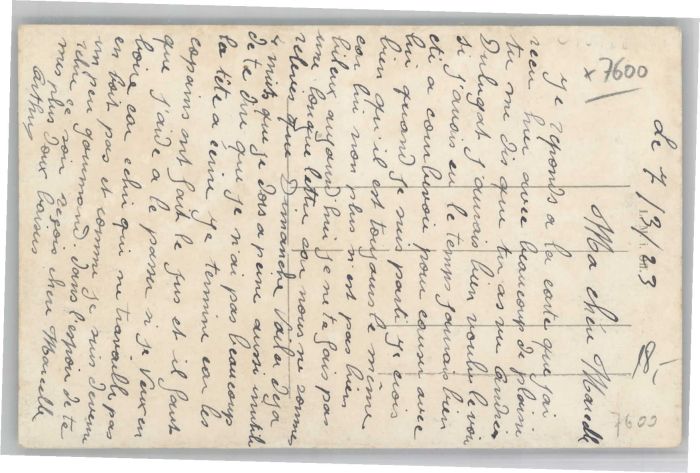 Le 7/3/23
Ma chère Marcelle
Je reponds a la carte que j'ai
recu hier avec beaucoup de plaisir
tu me dis que tu as vu
Dulugat j'aurais bien voulu le voir
si j'avais eu le temps j'aurais bien
été a pour causer avec
lui quand je suis parti je crois
bien qu'il est toujours le même
car lui non plus n'est pas bien
bileux aujourd'hui je ne te fais pas
une longue lettre car nous ne sommes
relevés que Dimanche Voila deja
4 nuits que je dors a peine aussi inutile
de te dire que je n'ai pas beaucoup
la tête a ecrire Je termine car les
copains ont fait le jus et il faut
que j'aide a le passer si je veux en
boire car celui qui ne travaille pas
en boit pas et comme je suis devenu
un peu gourmand dans l'espoir de te
relire ce soir reçois chère Marcelle
mes plus doux baisers
Arthur
x 7600
7600